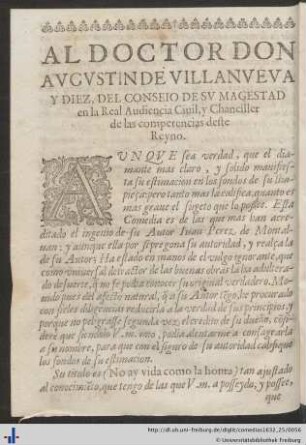 AL DOCTOR DON
AVGVSTIN DE VILLANVEVA
Y DIEZ, DEL CONSEIO DE SV MAGESTAD
en la Real Audiencia Ciuil, y Chanciller
de las competencias deste
Reyno.
AVNQVE sea verdad, que el dia-
mante mas claro, y solido manifies-
ta su estimacion en los fondos de su lim-
pieça: pero tanto mas la califica, quanto es
mas graue el sugeto que lo possee. Esta
Comedia es de las que mas han acre-
ditado el ingenio de su Autor Iuan Perez de Montal-
uan; y aunque ella por si pregona su autoridad, y realça la
de su Autor; Ha estado en manos de el vulgo ignorante, que
como vniuersal de las buenas obras la ha adultera-
do de suerte, que se podia conocer su original verdadero. Mo-
uido pues del afecto natural, q̃ a su Autor tẽgo, he procurado
con fieles diligencias reducirla a la verdad de sus principios, y
porque no peligrasse segunda vez el credito de su dueño, cõsi-
derè que su nõbre V.m. era, podia alentarme a consagrarla
a su nombre, para que con el seguro de su autoridad califique
los fondos de su estimacion.
Su titulo es (No ay vida como la honra) tan ajustado
al conocimiẽto, que tengo de las que V.m. a posseydo, y possee,
que
http://dl.ub.uni-freiburg.de/diglit/comedias1632_25/0056
© Universitätsbibliothek Freiburg